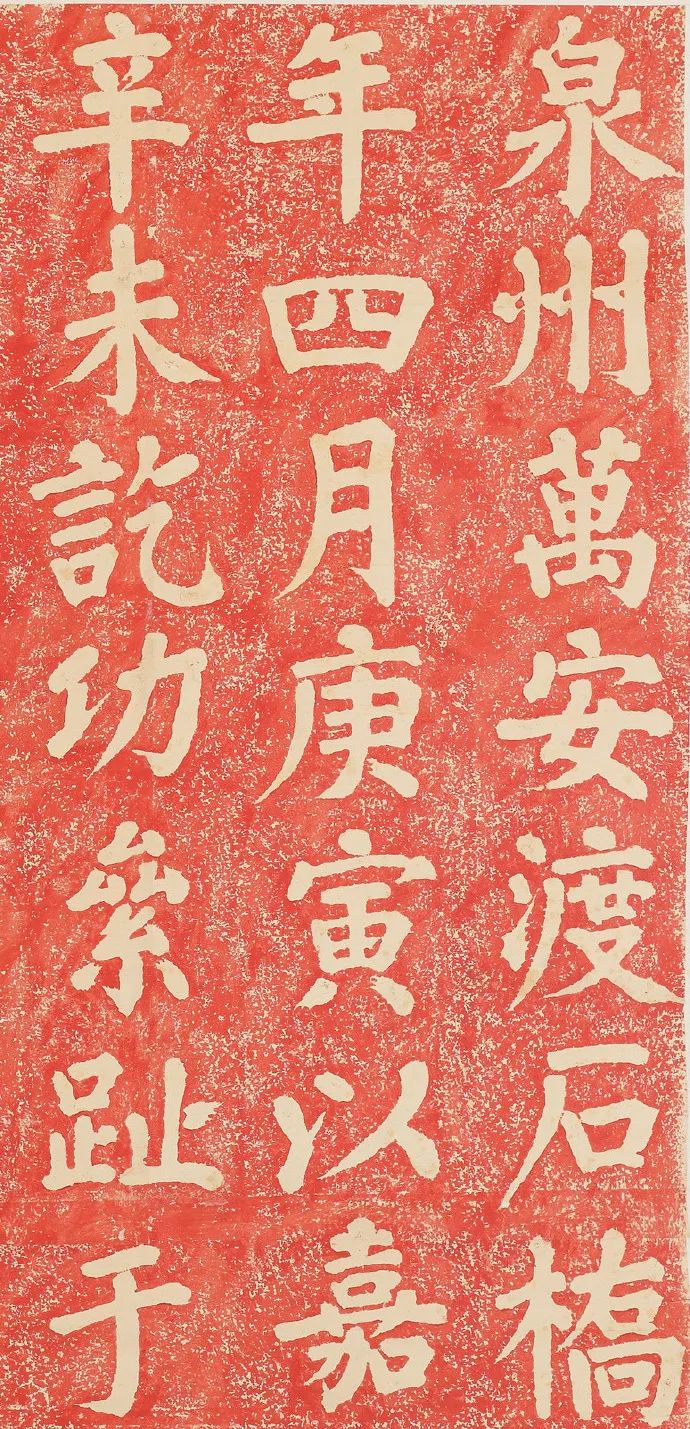 泉州萬安渡石橋
年四月庚寅以嘉
辛未訖功絫趾于